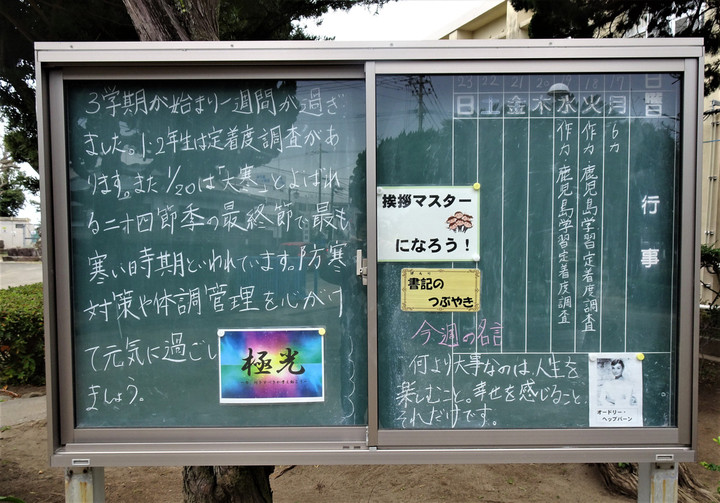 3学期が始まり一週間が過ぎ
ました。1・2年生は定着度調査があ
ります。また1/20は「大寒」とよばれ
る二十四節季の最終節で最も
寒い時期といわれています。防寒
対策や体調管理を心がけ
て元気に過ごし
ましょう。
極光
挨拶マスター
になろう!
書記の
つぶやき
今週の名言
何より大事なのは、人生を
楽しむこと。幸せを感じること、
それだけです。
オードリー・
ヘップバーン
行事
17 月 6カ
18 火 作カ・鹿児島学習定着度調査
水 作カ・鹿児島学習定着度調査
木
21 金
22 土
23 日